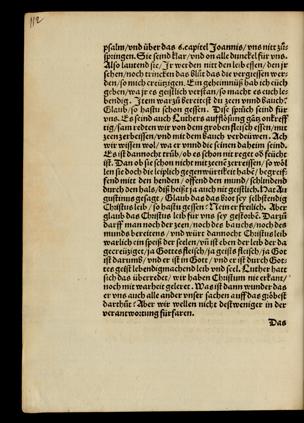 112
psalm/vnd über das 6.capitel Joannis/vns nitt zů
springen. Sie seind klar/vnd on alle dunckel für vns.
Also lautend sie/Jr werden nitt den leib essen/den jr
sehen/noch trincken das blůt das die vergiessen wer-
den/so mich creützigen. Ein geheimnüß hab ich eüch
geben/wa jr es geistlich verstan/so macht es eüch le-
bendig. Item warzů bereitest du zeen vnnd bauch?
Glaub/so hastu schon gessen. Dise sprüch seind für
vns. Es seind auch Luthers aufflösung gātz onkreff
tig/sam redten wir von dem groben fleisch essen/mit
zeen zerbeissen/vnd mit dem bauch verdeüwen. Ach
wir wissen wol/wa er vnnd die seinen daheim seind.
Es ist dannocht trüb/ob es schon nit reget od feücht
ist. Dan ob sie schon nicht mit zeenē zerreissen/so wöl
len sie doch die leiplich gegenwürtikeit habē/begreif-
fend mitt den henden/offend den mund/schlindend
durch den hals/diß heißt ja auch nit geistlich. Hat Au-
gustinus gesagt/Glaub das das brot sey selbstendig
Christus leib/so hastu gessen? Nem er freilich. Aber
glaub das Christus leib für vns sey gestorbē. Darzů
darff man noch der zeen/noch des bauchs/noch des
munds bereitens/vnd würt dannocht Christus leib
warlich ein speiß der seelen/vñ ist eben der leib der da
gecreütziget/ja Gottes fleisch/ja geists fleisch/ja Got
ist darumb/vnd er ist in Gott/vnd er ist durch Got-
tes geist lebendigmachend leib vnd seel. Luther hatt
sich das überredet/wir haben Christum nie erkant/
noch mit warheit geleret. Was ist dann wunder das
er vns auch alle ander vnser sachen auff das gröbest
darthůt? Aber wir wollen nicht destweniger in der
verantwortung fürfaren.
Das